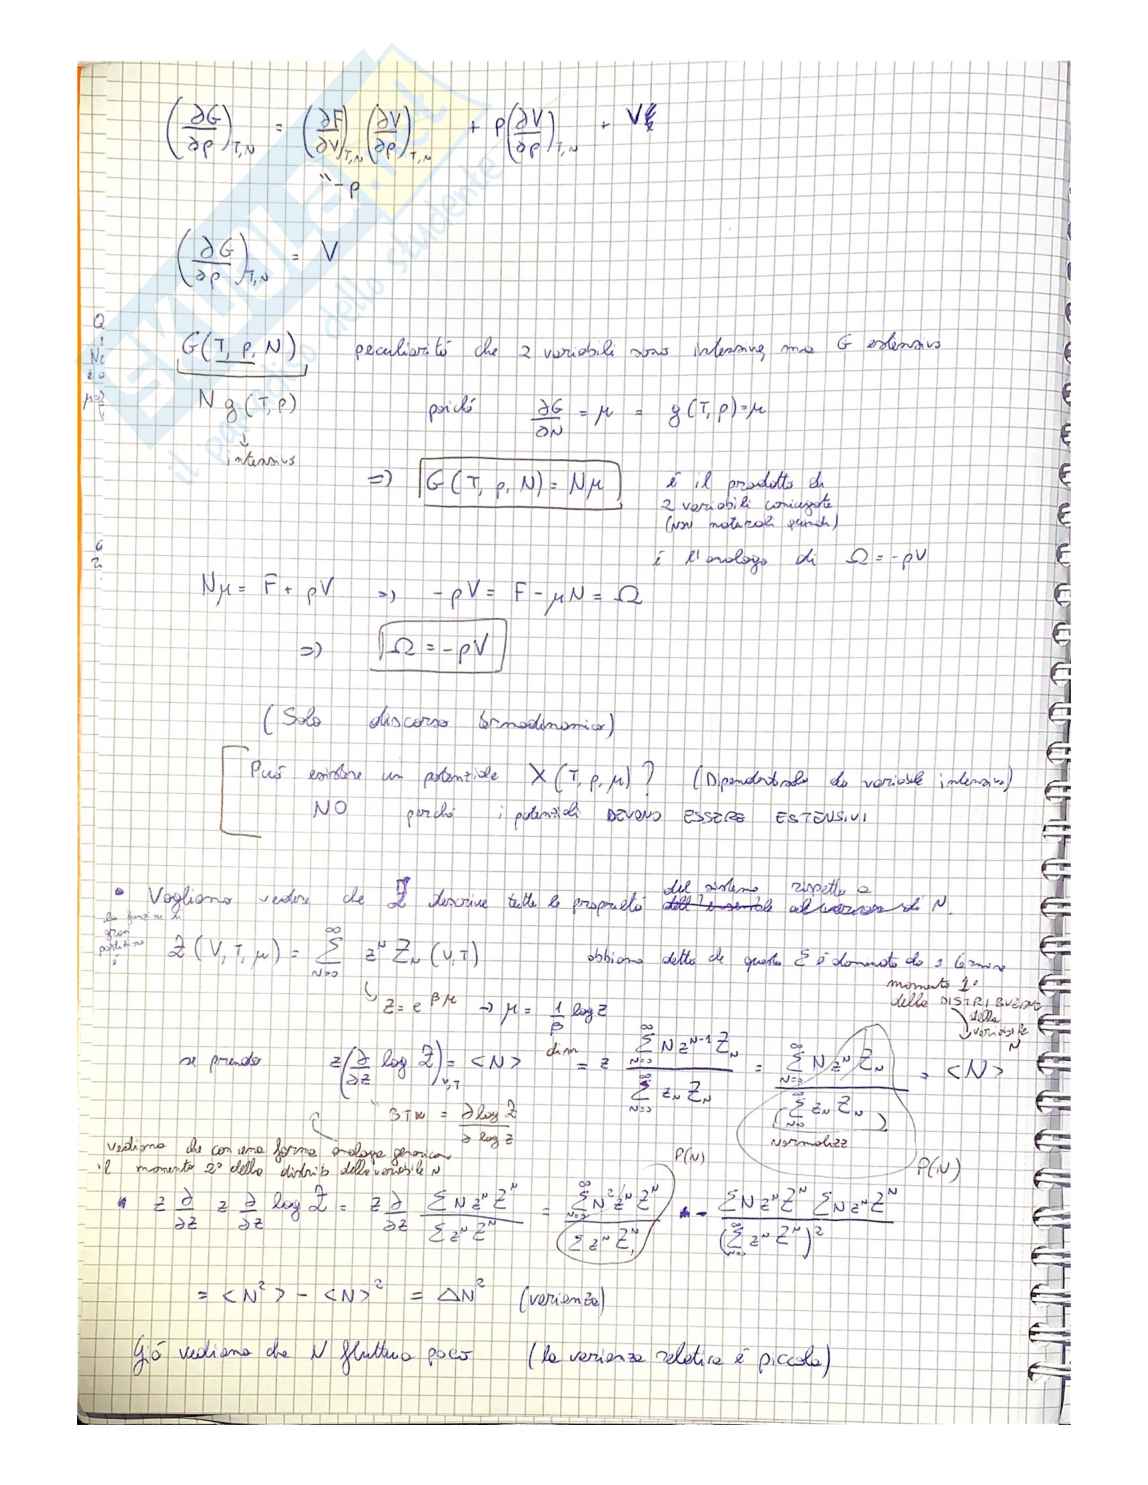 (∂G/∂p)_T,N = (∂F/∂V)_T,N (∂V/∂p)_T,N + p(∂V/∂p)_T,N + V
"-p
(∂G/∂p)_T,N = V
G(T, p, N) peculiarità che 2 variabili sono intensive, ma G estensiva
N g(T,p) poiché ∂G/∂N = μ = g(T,p)=μ
↓
intensiva
=> G(T, p, N) = Nμ è il prodotto di
2 variabili coniugate
è l'analogo di Ω = -pV
Nμ = F + pV => -pV = F - μN = Ω
=> Ω = -pV
(Solo discorso termodinamico)
Può esistere un potenziale X(T, p, μ)? (Dipendente solo da variabili intensive)
NO perché i potenziali DEVONO ESSERE ESTENSIVI
• Vogliamo vedere che Z descrive tutte le proprietà del sistema rispetto a N.
la funzione di
gran
partizione
è
Z(V, T, μ) = Σ_{N=0}^∞ z^N Z_N (V,T) abbiamo detto che questa Σ è dominata da 1 termine
z = e^{βμ} → μ = 1/β log z
momento 1°
della DISTRIBUZIONE
della
variabile
N
se prendo z(∂/∂z log Z)_V,T = <N> dim = z Σ_{N=0}^∞ N z^{N-1} Z_N / Σ_{N=0}^∞ z_N Z_N = Σ_{N=0}^∞ N z^N Z_N / (Σ_{N=0}^∞ z_N Z_N) = <N>
= ∂ log Z / ∂ log z
Normalizz
P(N)
vediamo che con una forma analoga generiamo
il momento 2° della distrib della variabile N
P(N)
• z ∂/∂z z ∂/∂z log Z = z ∂/∂z Σ N z^N Z^N / Σ z^N Z^N = Σ_{N=0}^∞ N² z^N Z^N / Σ z^N Z^N - Σ N z^N Z^N Σ N z^N Z^N / (Σ_{N=0}^∞ z^N Z^N)²
= <N²> - <N>² = ΔN² (varianza)
Già vediamo che N fluttua poco (la varianza relativa è piccola)